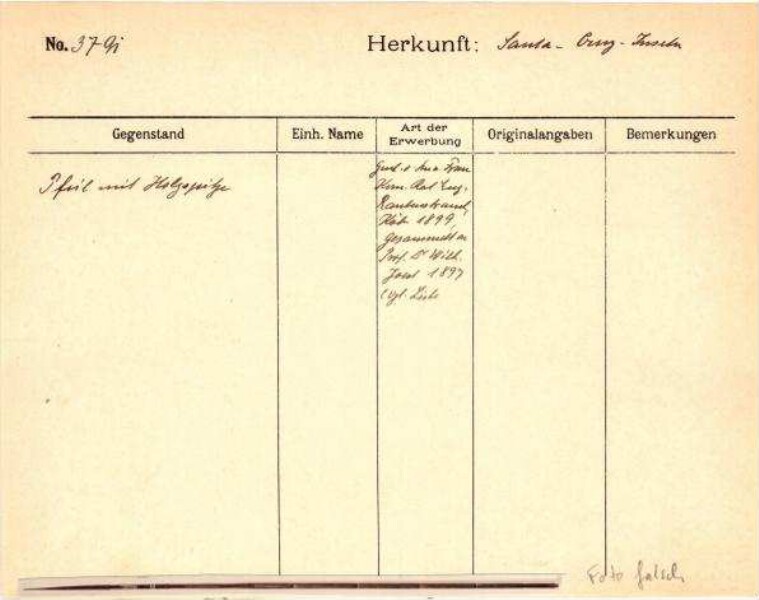 No. 379i Herkunft: Santa-Cruz-Inseln
Gegenstand Einh. Name Art der Erwerbung Originalangaben Bemerkungen
Pfeil mit Holzspitze
Frau
Kom. Rat Eug.
Rautenstrauch,
Köln 1899,
gesammelt von
Prof. Dr Wilh.
Joest 1897
(vgl. Liste
Foto falsch